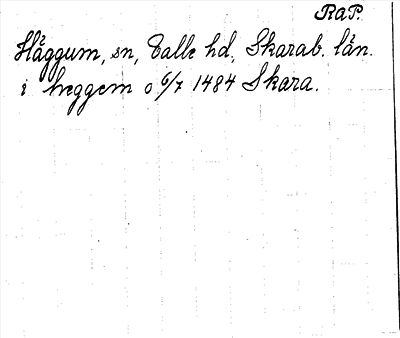 RaP.
Häggum, sn, Valle hd., Skarab. län.
i heggem o 6/7 1484 Skara.